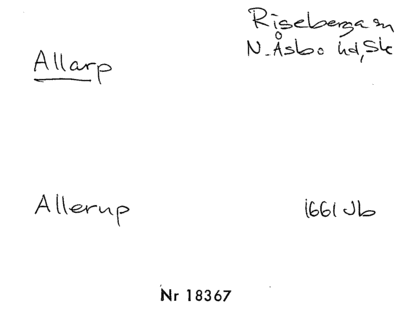 Riseberga sn
Allarp
N. Åsbo hd, Sk
Allerup
1661 Jb
Nr 18367